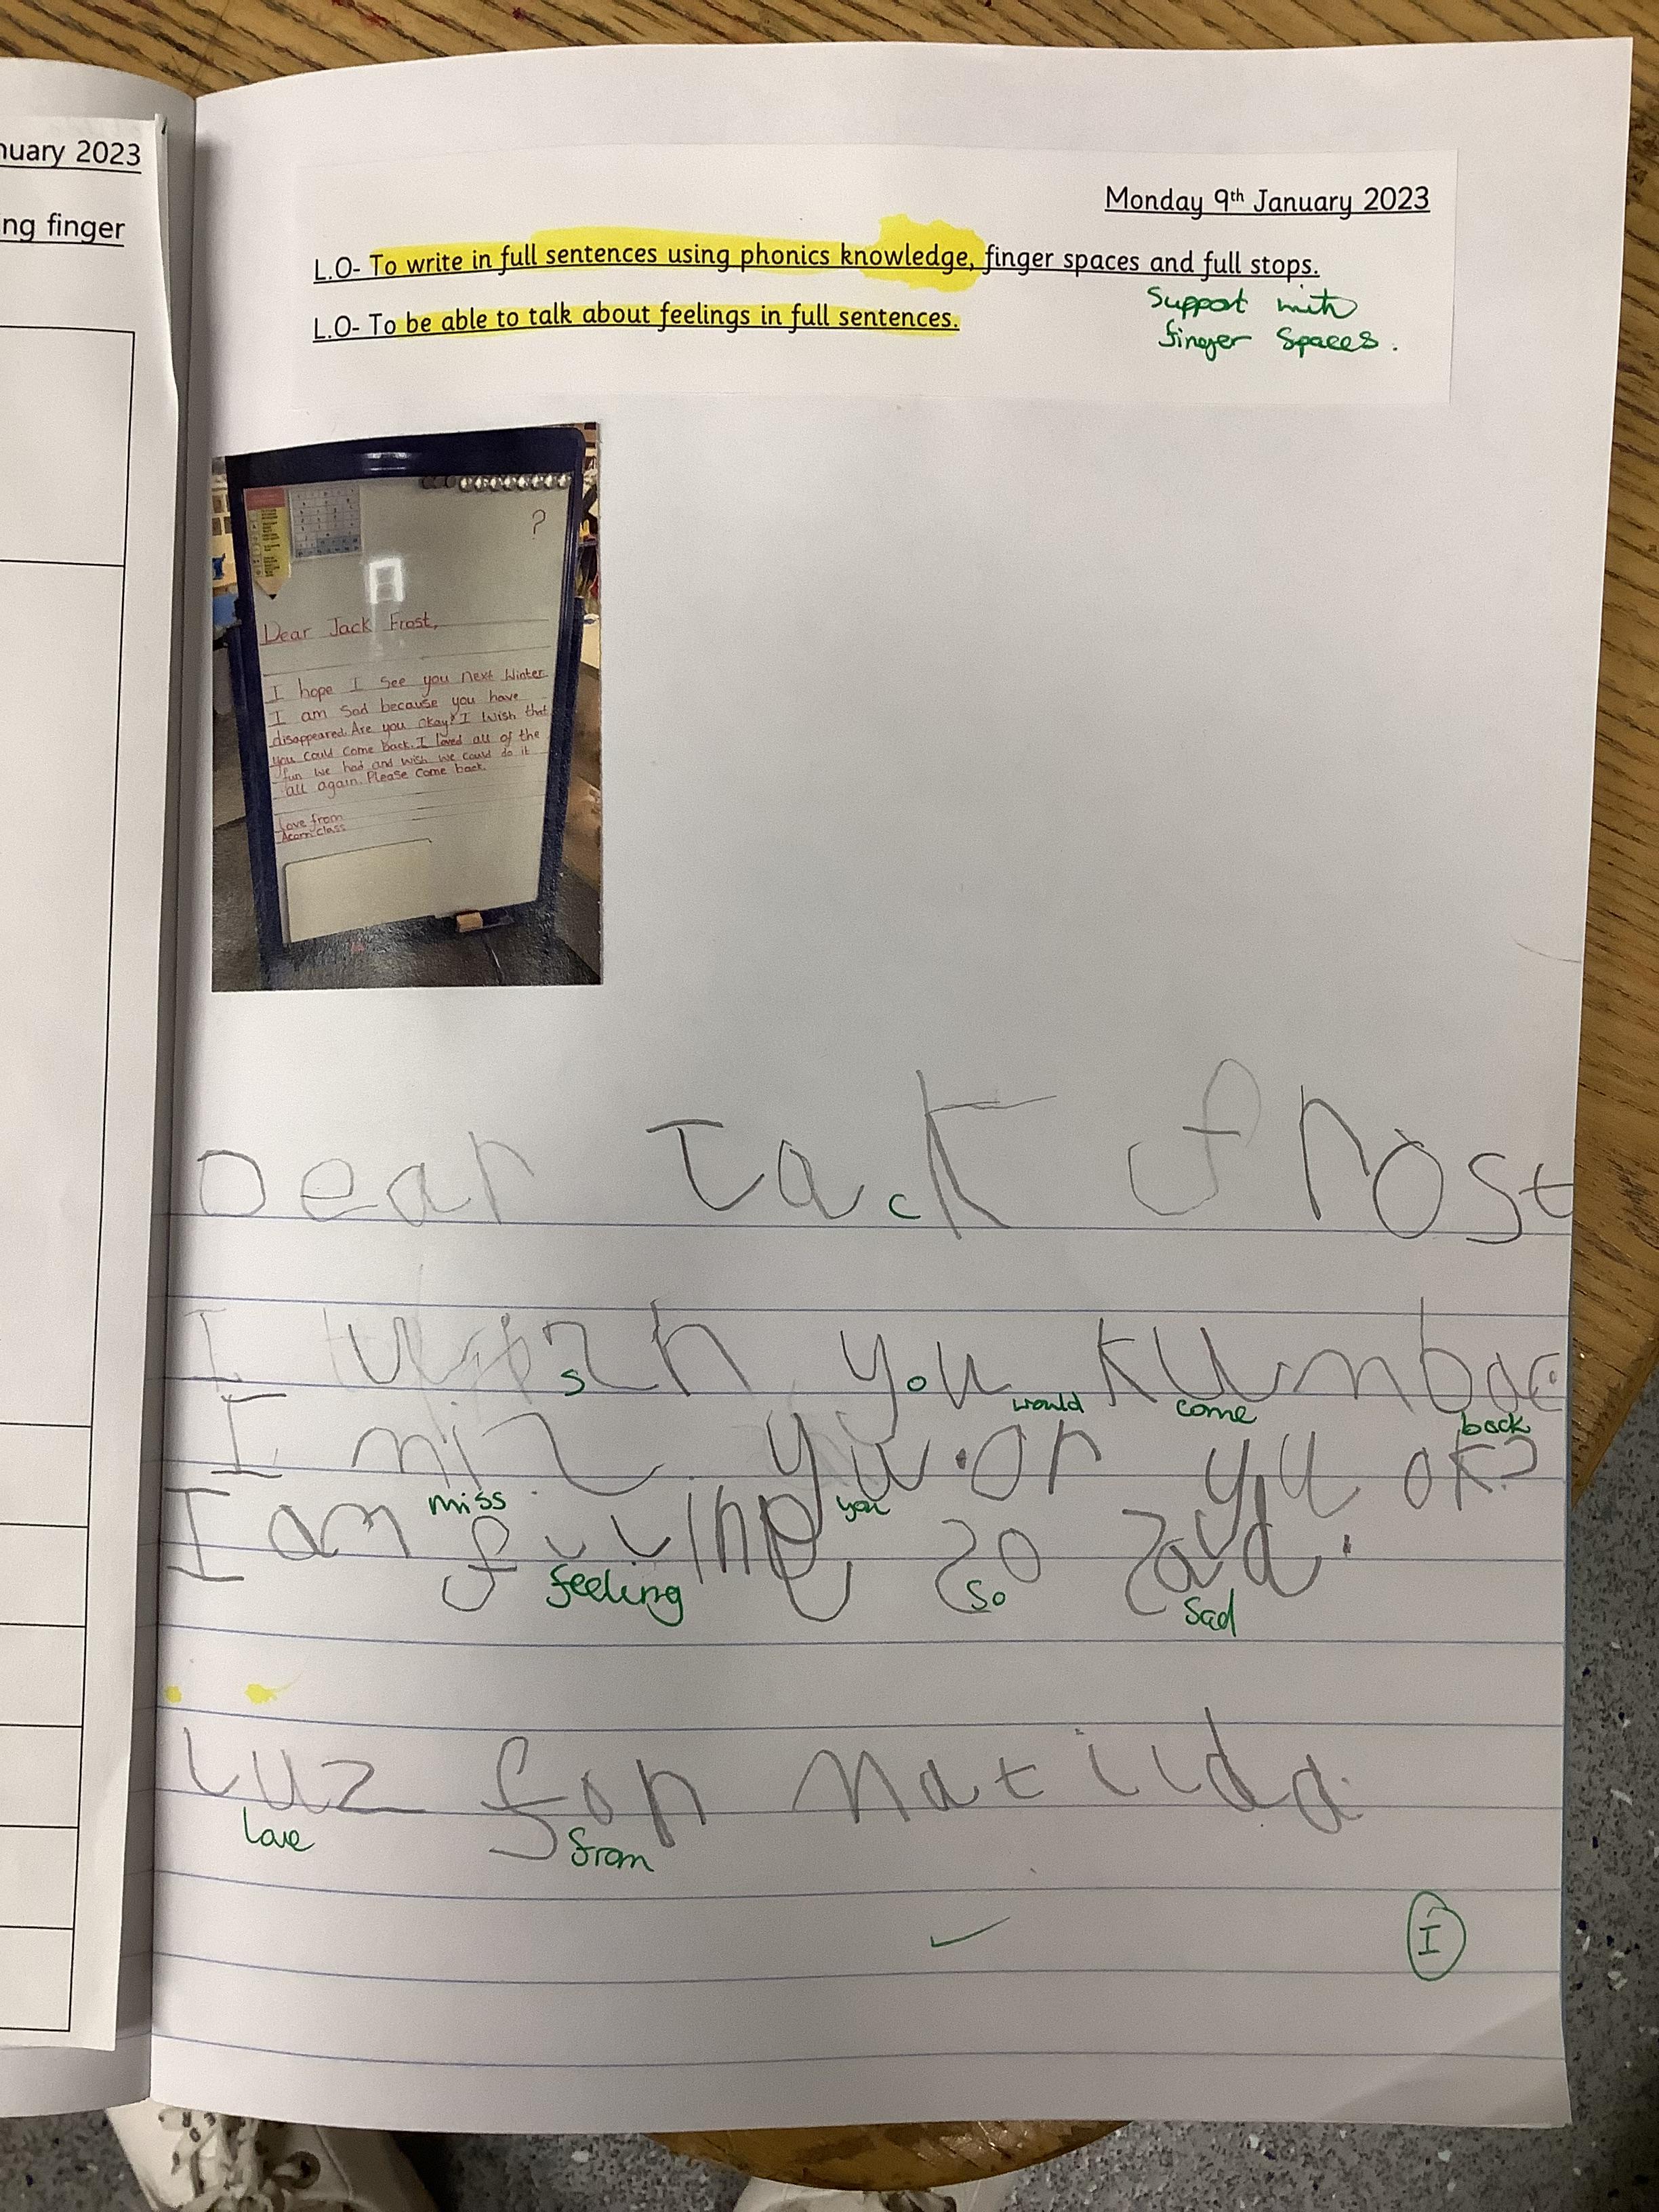 nuary 2023
ng finger
Monday 9th January 2023
L.O- To write in full sentences using phonics knowledge, finger spaces and full stops.
L.O- To be able to talk about feelings in full sentences.
Support with
finger spaces.
?
Dear Jack Frost,
I hope I see you next Winter
I am sad because you have
disappeared. Are you okay? I wish that
you could come back. I loved all of the
fun we had and wish we could do it
all again. Please come back.
Love from
Acorn class
Dear Jack frost
c
I yu kumbac
s o would come back
I miz yu. or yu ok?
miss you
I am fuuling so sad.
feeling so sad
luz fon matilda.
love from
I